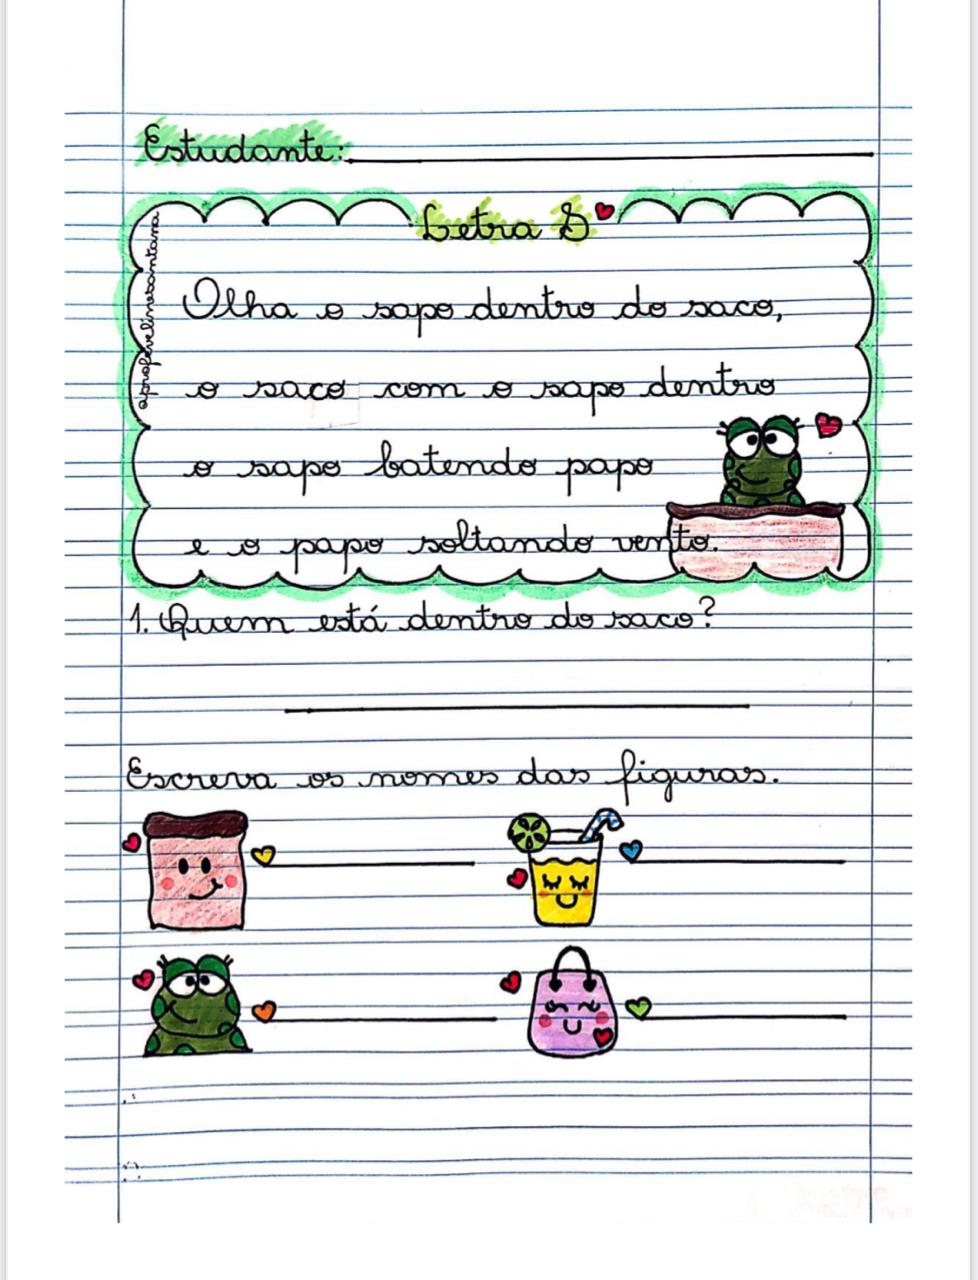 Estudante:
Letra S
@profevelinesantana
Olha o sapo dentro do saco,
o saco com o sapo dentro
o sapo batendo papo
e o papo soltando vento.
1. Quem está dentro do saco?
Escreva os nomes das figuras.